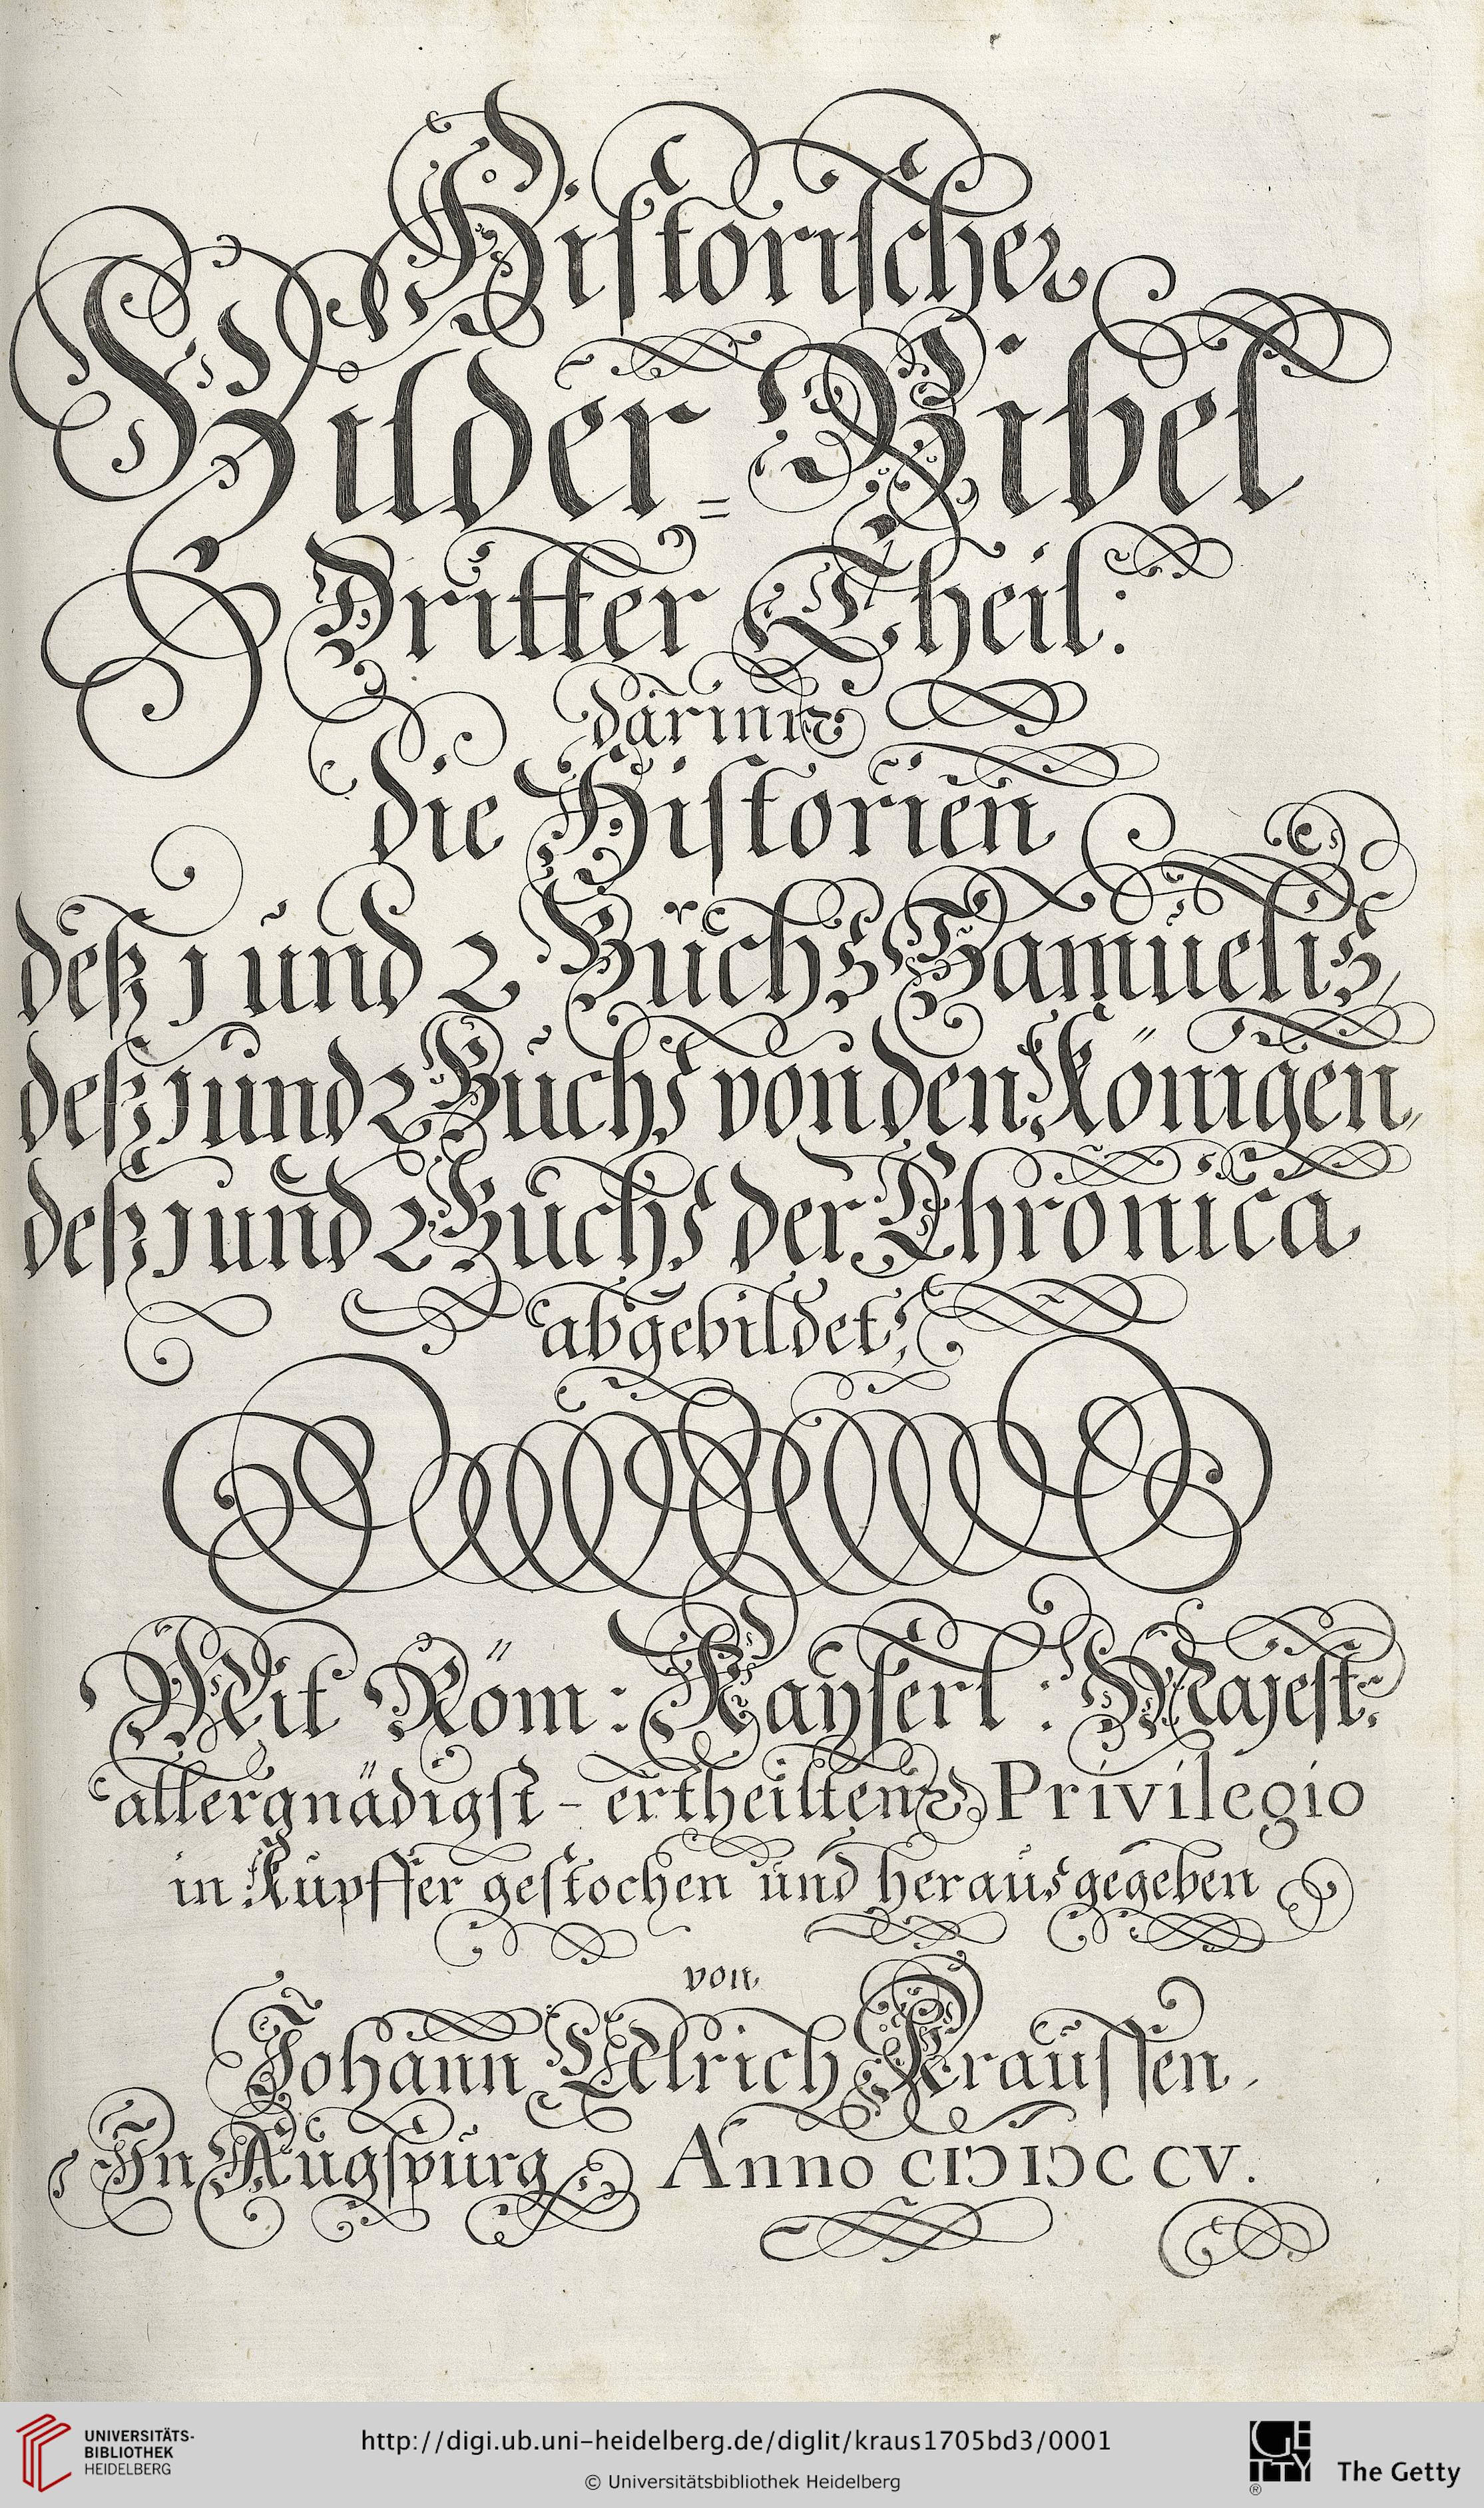 Historischer
Bilder=Bibel
Dritter Theil:
darinn
die Historien
deß 1 und 2 Buchs Samuelis,
deß 1 und 2 Buchs von den Königen,
deß 1 und 2 Buchs der Chronica
abgebildet,
Mit Röm: Kayserl: Majest:
allergnädigst-ertheilten Privilegio
in Kupffer gestochen und herausgegeben
von
Johann Ulrich Kraussen,
In Augspurg Anno CIƆIƆCCV.
UNIVERSITÄTS-
BIBLIOTHEK
HEIDELBERG
http://digi.ub.uni-heidelberg.de/diglit/kraus1705bd3/0001
© Universitätsbibliothek Heidelberg
GETTY
®
The Getty